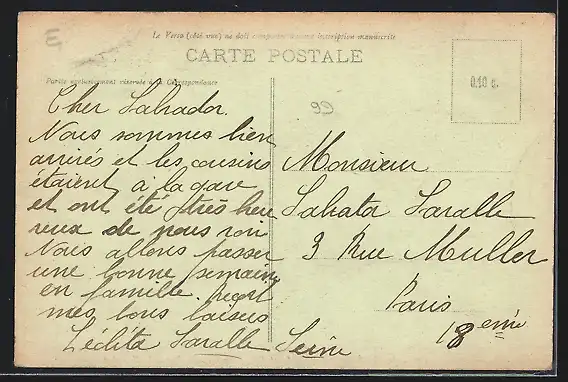 E
Le Verso (côté vue) ne doit comporter aucune inscription manuscrite
CARTE POSTALE
Partie exclusivement réservée à la Correspondance
0.10 c.
99
Cher Salvador.
Nous sommes bien
arrivés et les cousins
étaient à la gare
et ont été très heu
reux de nous voir
Nous allons passer
une bonne semaine
en famille. reçoit
mes bons baisers
Lédita Saralle
Monsieur
Salvator Saralle
3 Rue Muller
Paris
18 eme
Seine